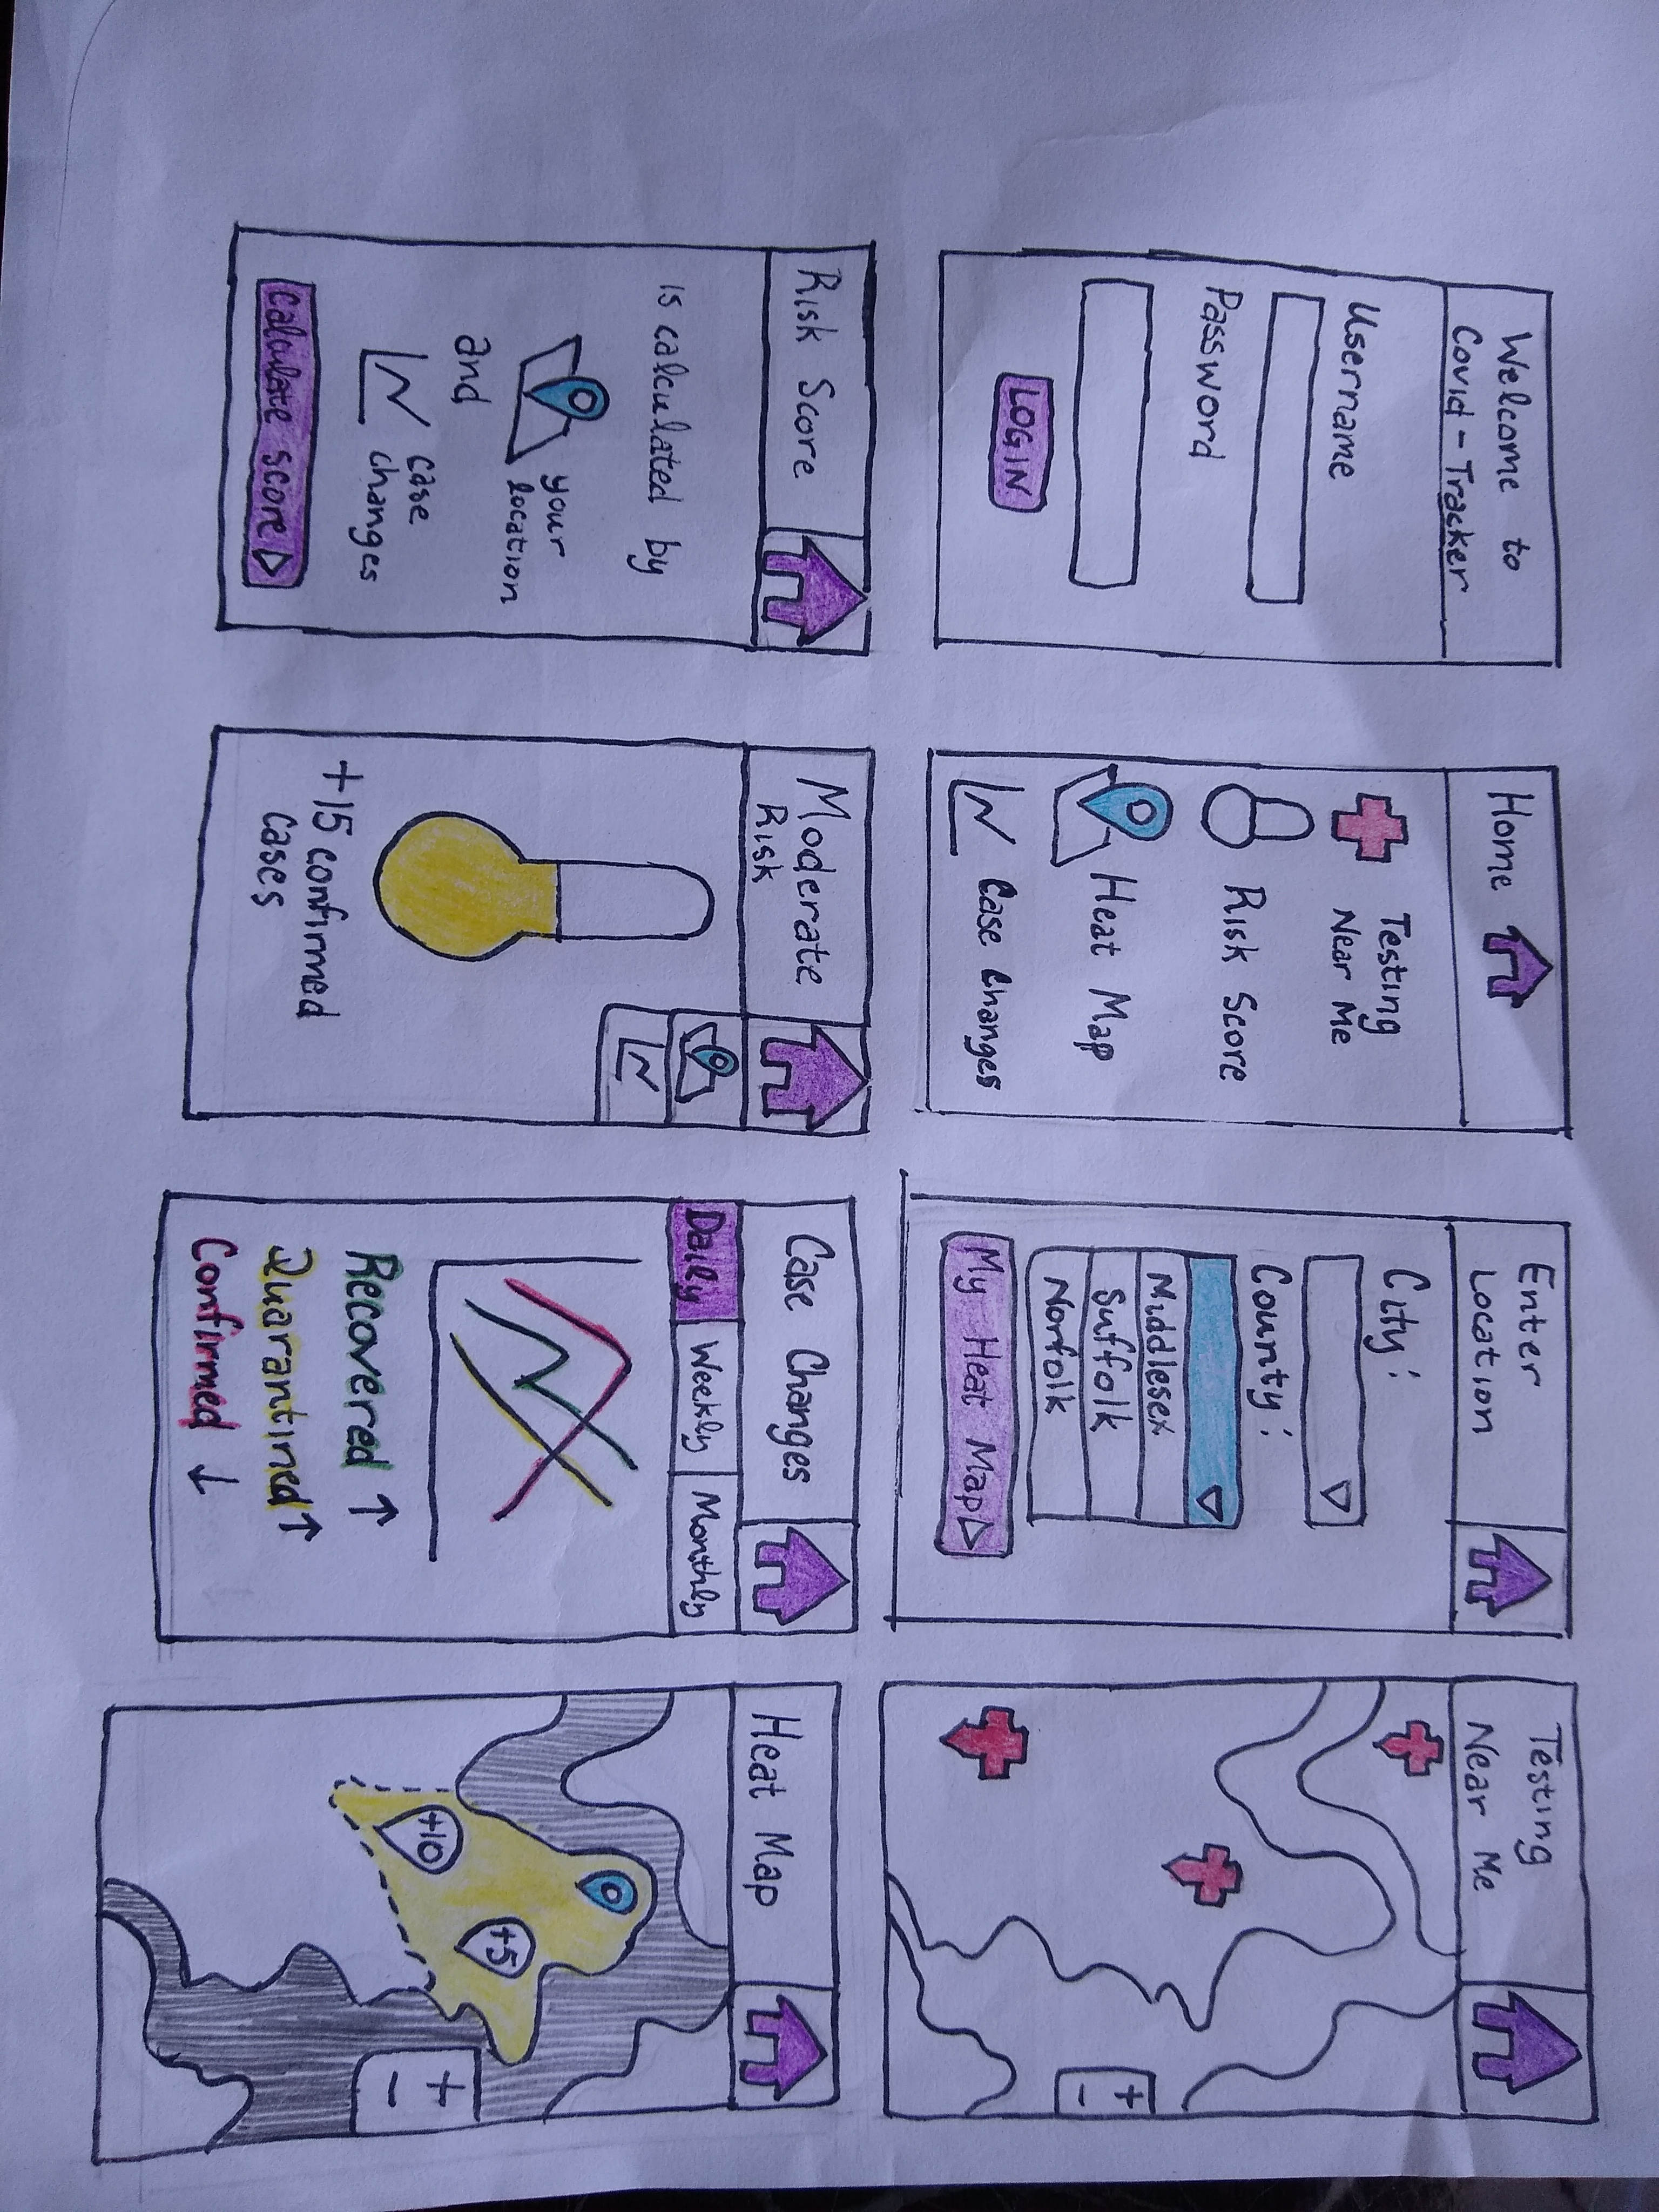 Welcome to
Covid - Tracker
Username
Password
LOGIN
Home
Testing
Near Me
Risk Score
Heat Map
Case Changes
Enter
Location
City:
County:
Middlesex
Suffolk
Norfolk
My Heat Map
Testing
Near Me
+
-
Risk Score
is calculated by
your
location
and
case
changes
Calculate score
Moderate
Risk
+15 confirmed
cases
Case Changes
Daily Weekly Monthly
Recovered ↑
Quarantined ↑
Confirmed ↓
Heat Map
+10
+5
+
-